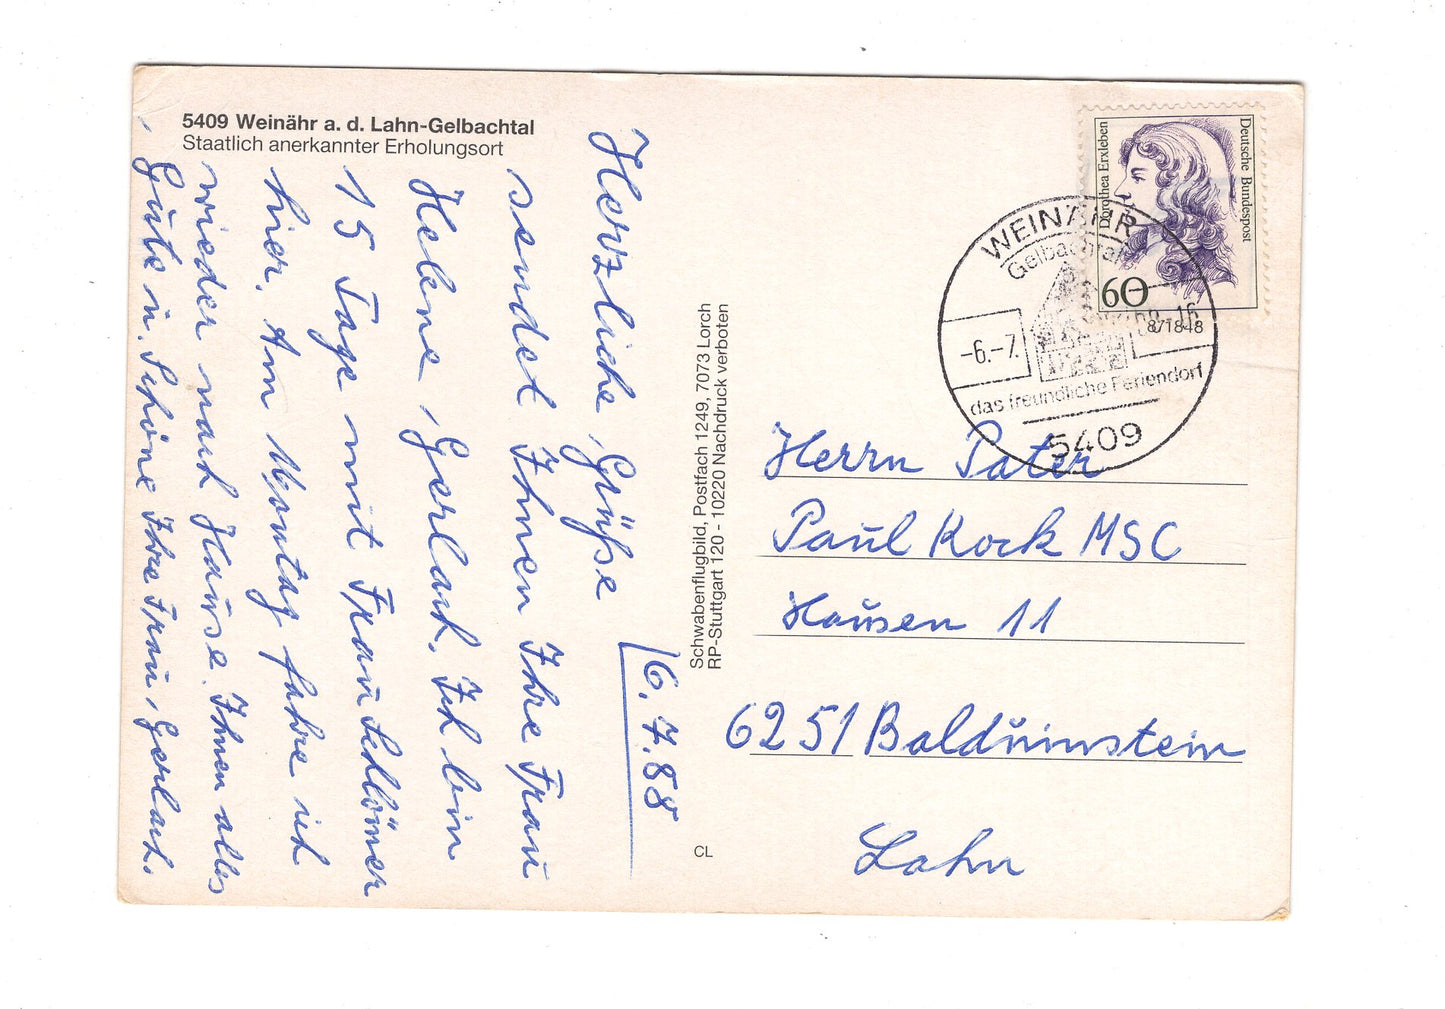 5409 Weinähr a. d. Lahn-Gelbachtal
Staatlich anerkannter Erholungsort
6.7.88
Herzliche Grüße
sendet Ihnen Ihre Frau
Helene Gerlach. Ich bin
15 Tage mit Frau Schlömer
hier. Am Montag fahre ich
wieder nach Hause. Ihnen alles
Gute u. Schöne Ihre Frau Gerlach.
Schwabenflugbild, Postfach 1249, 7073 Lorch
RP-Stuttgart 120 - 10220 Nachdruck verboten
CL
Deutsche Bundespost
Dorothea Erxleben
60
WEINÄHR
Gelbachtal
-6.-7.
-16
871848
das freundliche Feriendorf
5409
Herrn Pater
Paul Kock MSC
Hausen 11
6251 Balduinstein
Lahn